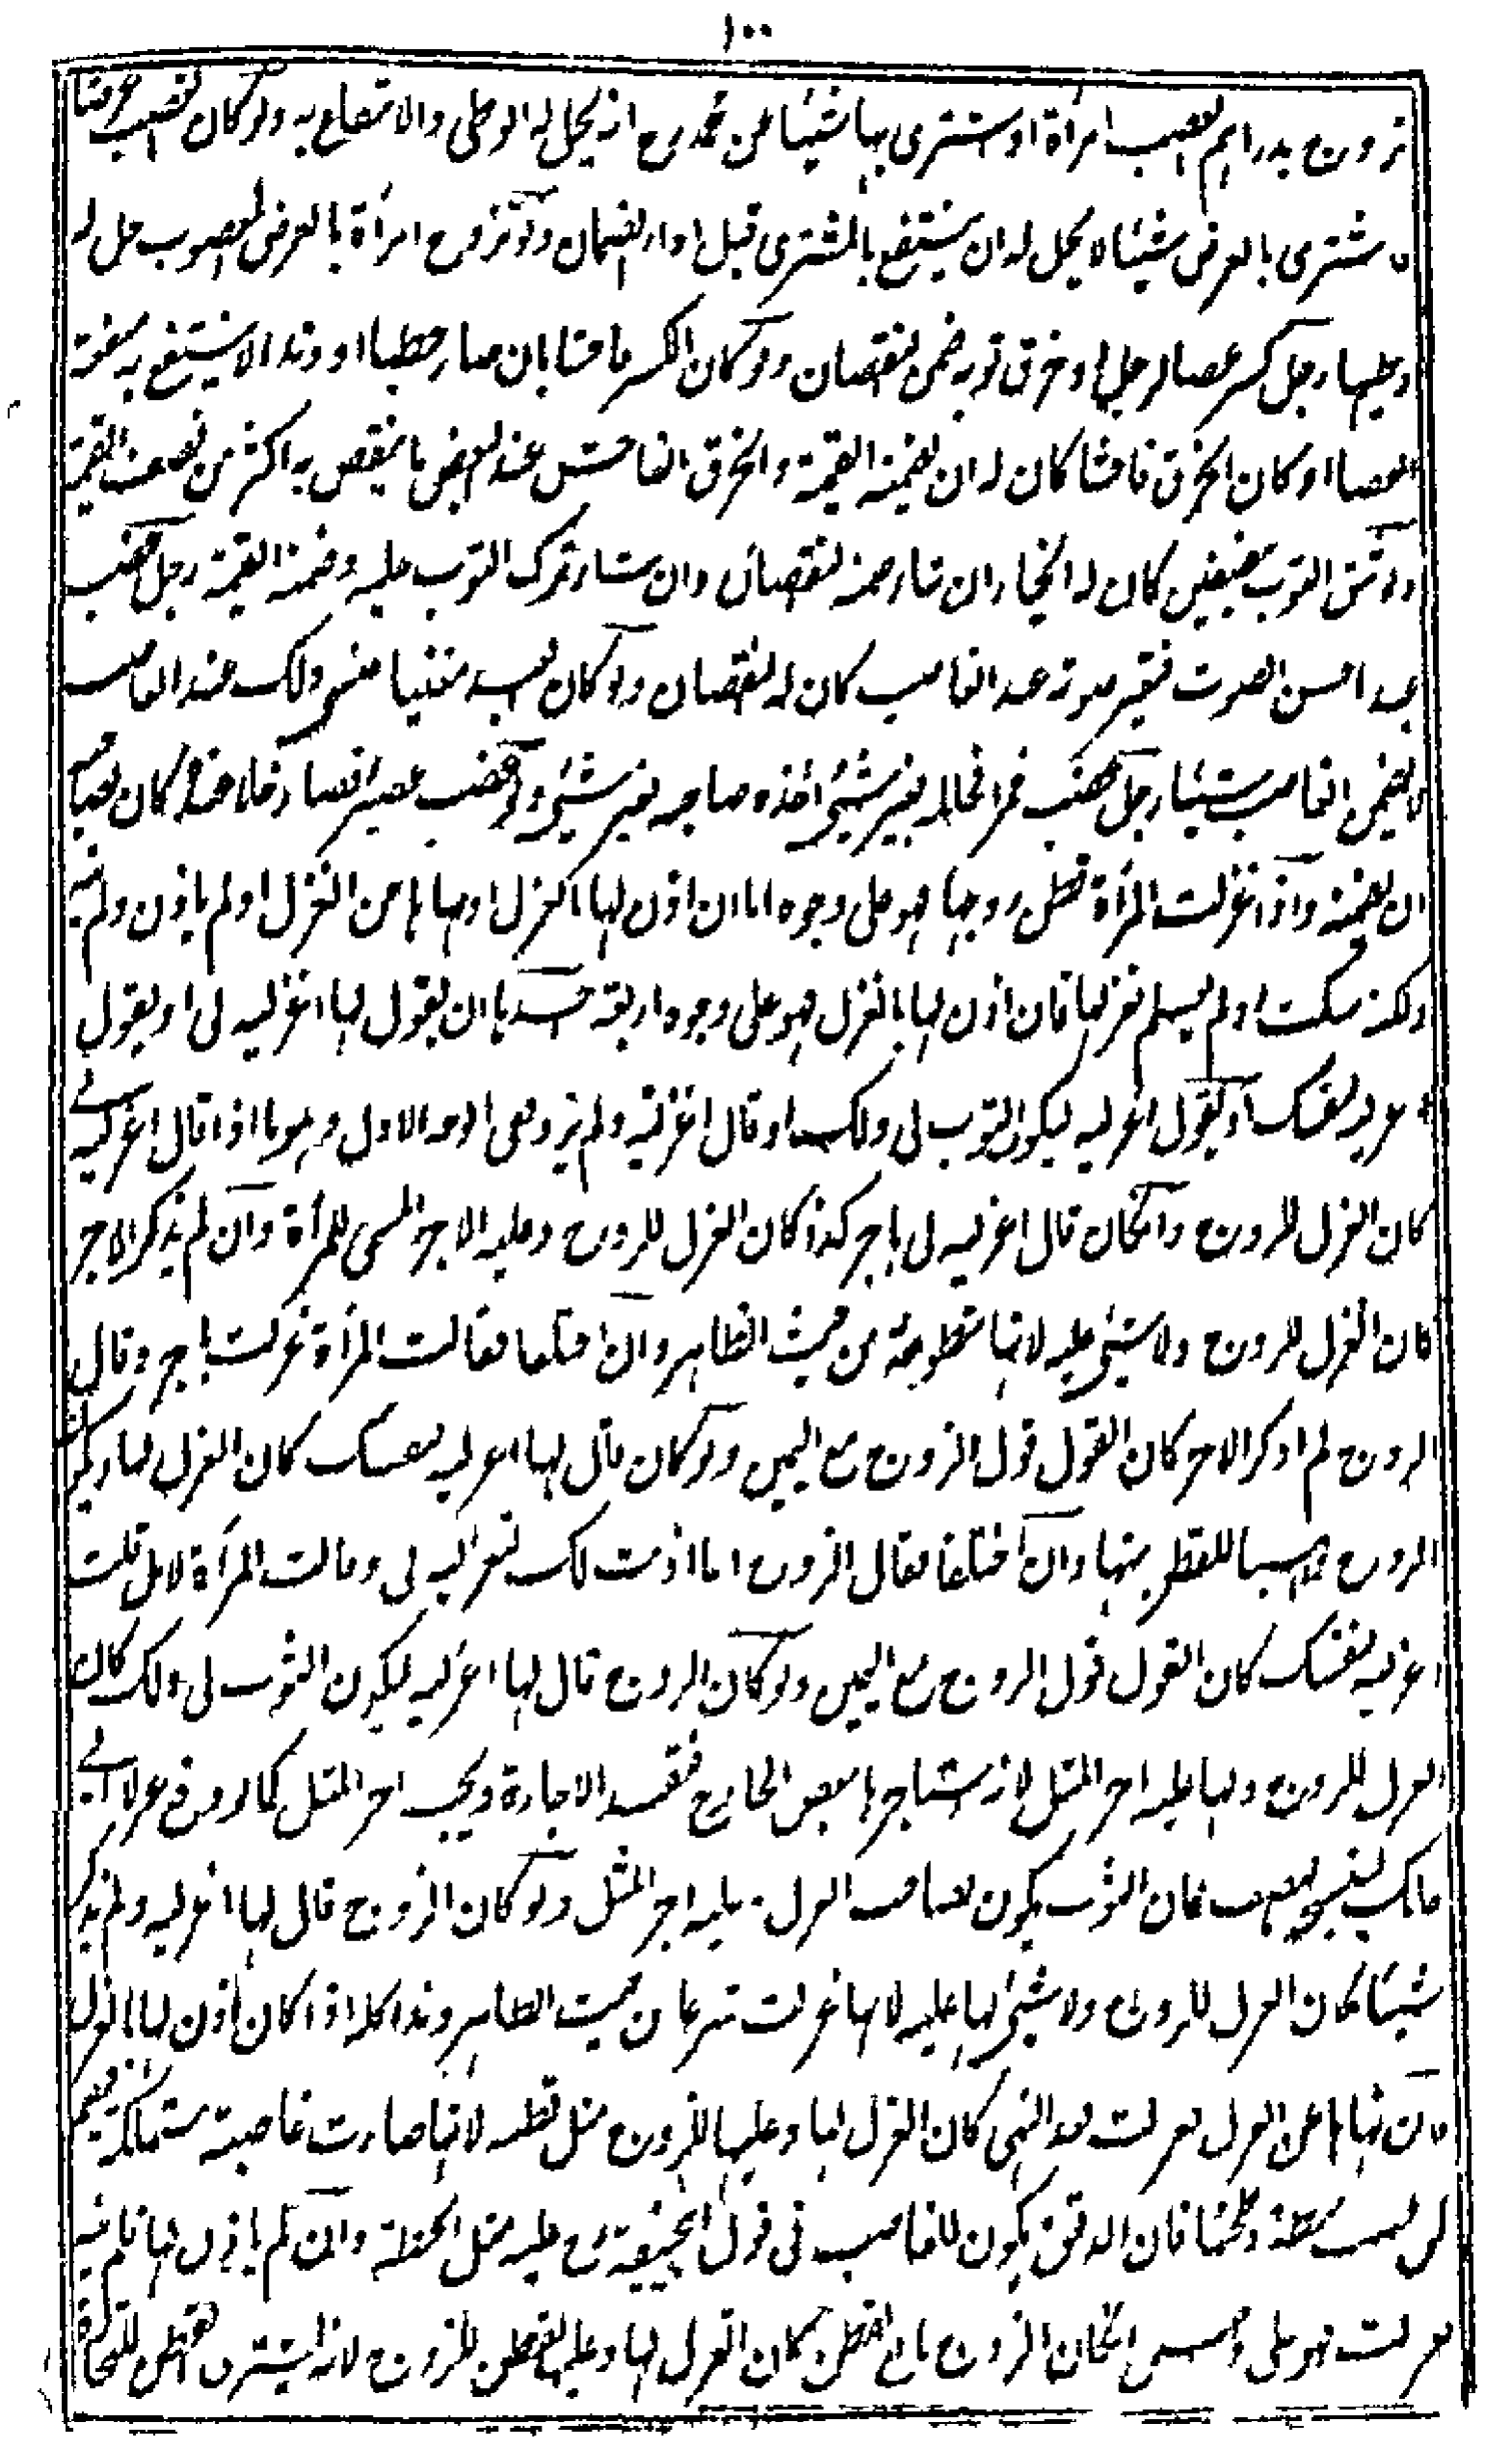 ١٠٠
تزوج بدراهم الغصب امرأة او اشترى بها شيئا عن محمد رح انه يحل له الوطى والانتفاع به ولو كان الغصب عرضا
اشترى بالعرض شيئا لا يحل له ان ينتفع بالمشترى قبل اداء الضمان ولو تزوج امرأة بالعرض المغصوب حل له
وطيها رجل كسر عصا لرجل او خرق ثوبه ضمن النقصان ولو كان الكسر فاحشا بان صار حطبا او وتدا لا ينتفع به منفعة
العصا او كان الخرق فاحشا كان له ان يضمنه القيمة والخرق الفاحش عند البعض ما ينقص به اكثر من نصف القيمة
ولو شق الثوب نصفين كان له الخيار ان شاء ضمنه النقصان وان شاء ترك الثوب عليه وضمنه القيمة رجل غصب
عبدا حسن الصوت فتغير صوته عند الغاصب كان له النقصان ولو كان العبد مغنيا فنسى ذلك عند الغاصب
لا يضمن الغاصب شيئا رجل غصب خمرا فخلله بغير شئ اخذه صاحبه بغير شئ ولو غصب عصيرا فصار خلا عنده كان لصاحبه
ان يضمنه واذا غزلت المرأة قطن زوجها فهو على وجوه اما ان اذن لها بالغزل او نهاها من الغزل او لم يأذن ولم ينه
ولكنه سكت او لم يعلم بغزلها فان اذن لها بالغزل فهو على وجوه اربعة احدها ان يقول لها اغزليه لى او يقول
اغزليه لنفسك او يقول اغزليه ليكون الثوب لى ولك او قال اغزليه ولم يزد ففى الوجه الاول وهو ما اذا قال اغزليه لى
كان الغزل للزوج وان كان قال اغزليه لى باجر كذا كان الغزل للزوج وعليه الاجر المسمى للمرأة وان لم يذكر الاجر
كان الغزل للزوج ولا شئ عليه لانها متطوعة من حيث الظاهر وان اختلفا فقالت المرأة غزلت باجر وقال
الزوج لم اذكر الاجر كان القول قول الزوج مع اليمين ولو كان قال لها اغزليه لنفسك كان الغزل لها ويكون
الزوج واهبا للقطن منها وان اختلفا فقال الزوج انما اذنت لك لتغزليه لى وقالت المرأة لا بل قلت
اغزليه لنفسك كان القول قول الزوج مع اليمين ولو كان الزوج قال لها اغزليه ليكون الثوب لى ولك كان
الغزل للزوج ولها عليه اجر المثل لانه استاجرها ببعض الخارج فتفسد الاجارة ويجب اجر المثل كما لو دفع غزلا الى
حائك لينسجه بالنصف فان الثوب يكون لصاحب الغزل وعليه اجر المثل ولو كان الزوج قال لها اغزليه ولم يذكر
شيئا كان الغزل للزوج ولا شئ لها عليه لانها غزلت تبرعا من حيث الظاهر وهذا كله اذا كان اذن لها بالغزل
فان نهاها عن الغزل فغزلت بعد النهى كان الغزل لها وعليها للزوج مثل قطنه لانها صارت غاصبة مستهلكة فيضمن
كمن غصب حنطة وطحنها فان الدقيق يكون للغاصب فى قول ابي حنيفة رح وعليه مثل الحنطة وان لم يأذن لها ولم ينه
فغزلت فهو على وجهين ان كان الزوج بائع القطن كان الغزل لها وعليها القطن للزوج لانه اشترى القطن للتجارة